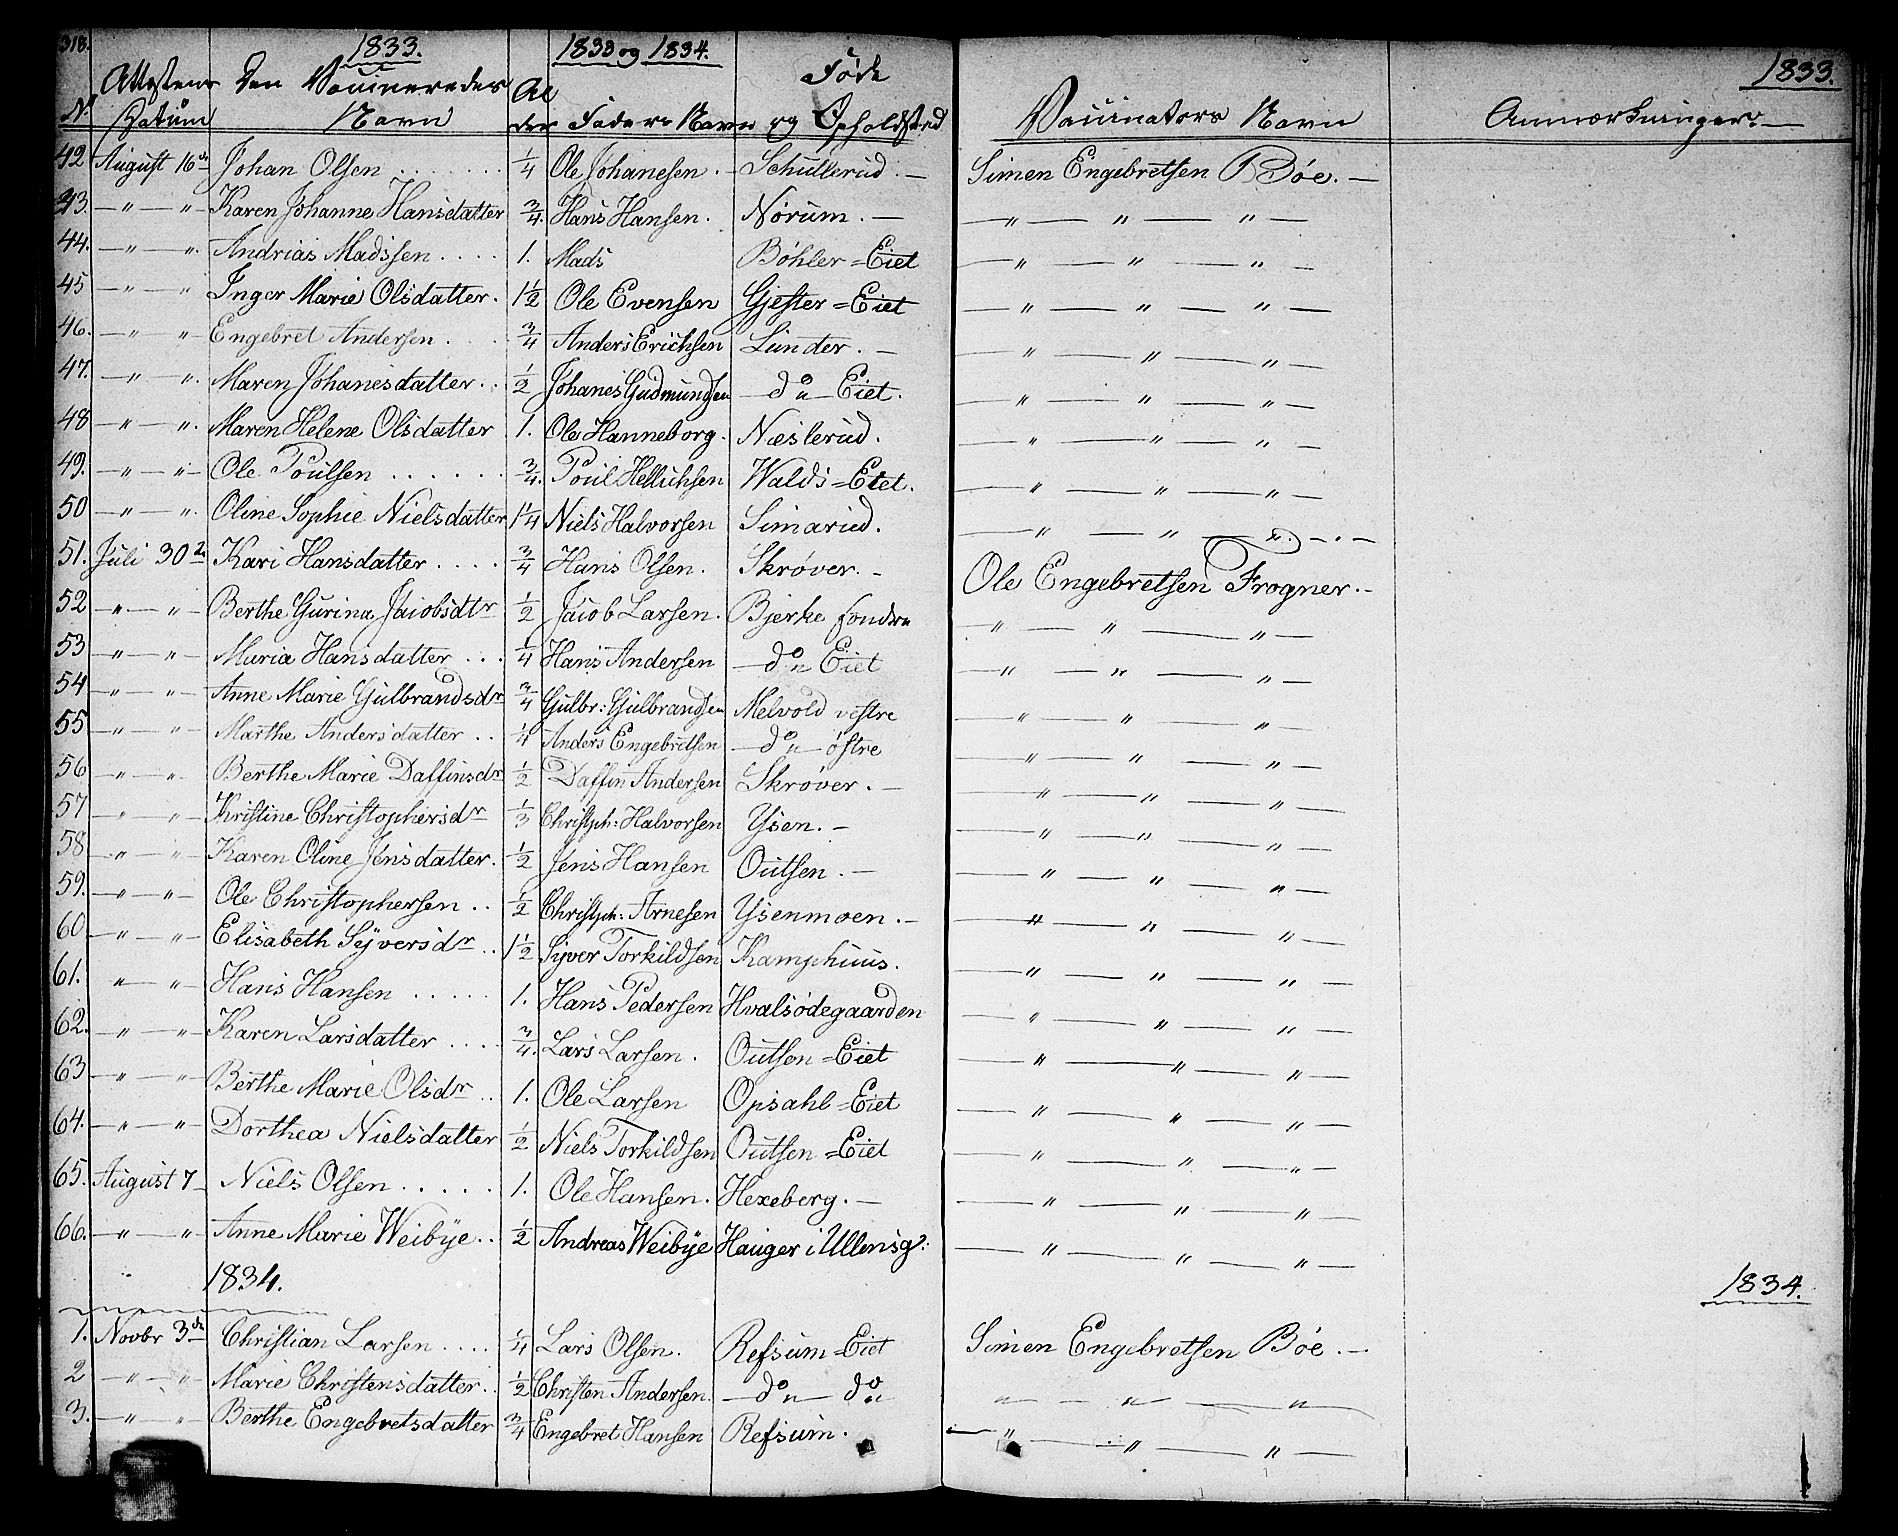 318. 1833. 1833 og 1834. 1833.
No Attestens Datum Den Vaccineredes Navn Alder Faders Navn Føde og Opholdsted Vaccinators Navn Anmærkninger. —
42 August 16de Johan Olsen . . . . . . . 1/4 Ole Johanesen. — Schullerud. — Simen Engebretsen Bøe. —
43. — " — " — Karen Johanne Hansdatter 3/4. Hans Hansen. Nørum. — — " — " — " —
44. — " — " . Andrias Madssen . . . . 1. Mads Bøhler = Eiet — " — " — " —
45 — " — " Inger Marie Olsdatter. 1 1/2 Ole Evensen Gjester = Eiet — " — " — " —
46. — " — " Engebret Andersen . . . 3/4 Anders Erichsen Lunder. — — " — " — " —
47. — " — " . Maren Johanesdatter. . 1/2 Johanes Gudmundsen — do — Eiet. — " — " — " —
48 — " — " . Maren Helene Olsdatter 1. Ole Hanneborg. Næslerud. — " — " — " —
49. — " — " — Ole Poulsen . . . . . . 3/4. Poul Hellichsen Walds = Eiet. — " — " — " —
50 — " — " . Oline Sophie Nielsdatter 1 1/4 Niels Halvorsen Simarud. — " — " — " —
51. Juli 30te Kari Hansdatter . . . . 3/4 Hans Olsen. Skrøver. — Ole Engebretsen Frogner. —
52 — " — " Berthe Gurina Jacobsdtr 1/2 Jacob Larsen. Bjerke søndre — " — " — " —
53 — " — " — Maria Hansdatter . . . 1/4 Hans Andersen — do Eiet — " — " — " —
54 — " — " — Anne Marie Gulbrandsdr 3/4 Gulbr: Gulbrandsen Melvold vestre — " — " — " —
55 — " — " — Marthe Andersdatter . . 1/4 Anders Engebretsen — do — østre — " — " — " —
56 — " — " Berthe Marie Daffinsdr 1/2 Daffin Andersen Skrøver. — — " — " — " —
57 — " — " — Kristine Christophersdr 1/3 Christph: Halvorsen Ysen. — — " — " — " —
58 — " — " — Karen Oline Jensdatter. 1/2 Jens Hansen Outsen. — — " — " — " —
59. — " — " — Ole Christophersen . . 1/2 Christph: Arnesen Ysenmoen. — — " — " — " —
60 — " — " — Elisabeth Syversdr . . 1 1/2 Syver Torkildsen Kamphuus. — " — " — " —
61. — " — " — Hans Hansen . . . . . 1. Hans Pedersen Hvalsødegaarden — " — " — " —
62. — " — " Karen Larsdatter . . . . 3/4. Lars Larsen. Outsen = Eiet — " — " — " —
63 — " — " — Berthe Marie Olsdr . . 1. Ole Larsen Opsahl = Eiet — " — " — " —
64. — " — " Dorthea Nielsdatter 1/2 Niels Torkildsen Outsen = Eiet — " — " — " —
65. August 7 — Niels Olsen . . . . . 1. Ole Hansen. Hexeberg. — — " — " — " —
66. — " — " Anne Marie Weibye . . 1/2 Andreas Weibye Hauger i Ullensg: — " — " — " —
1834. 1834.
1. Novbr 3de Christian Larsen . . . . 1/4 Lars Olsen. Refsum = Eiet Simen Engebretsen Bøe. —
2 — " — " Marie Christensdatter. . 1/2 Christen Andersen. — do — do " — " — "
3. — " — " Berthe Engebretsdatter 3/4 Engebret Hansen Refsum. — " — " — " —